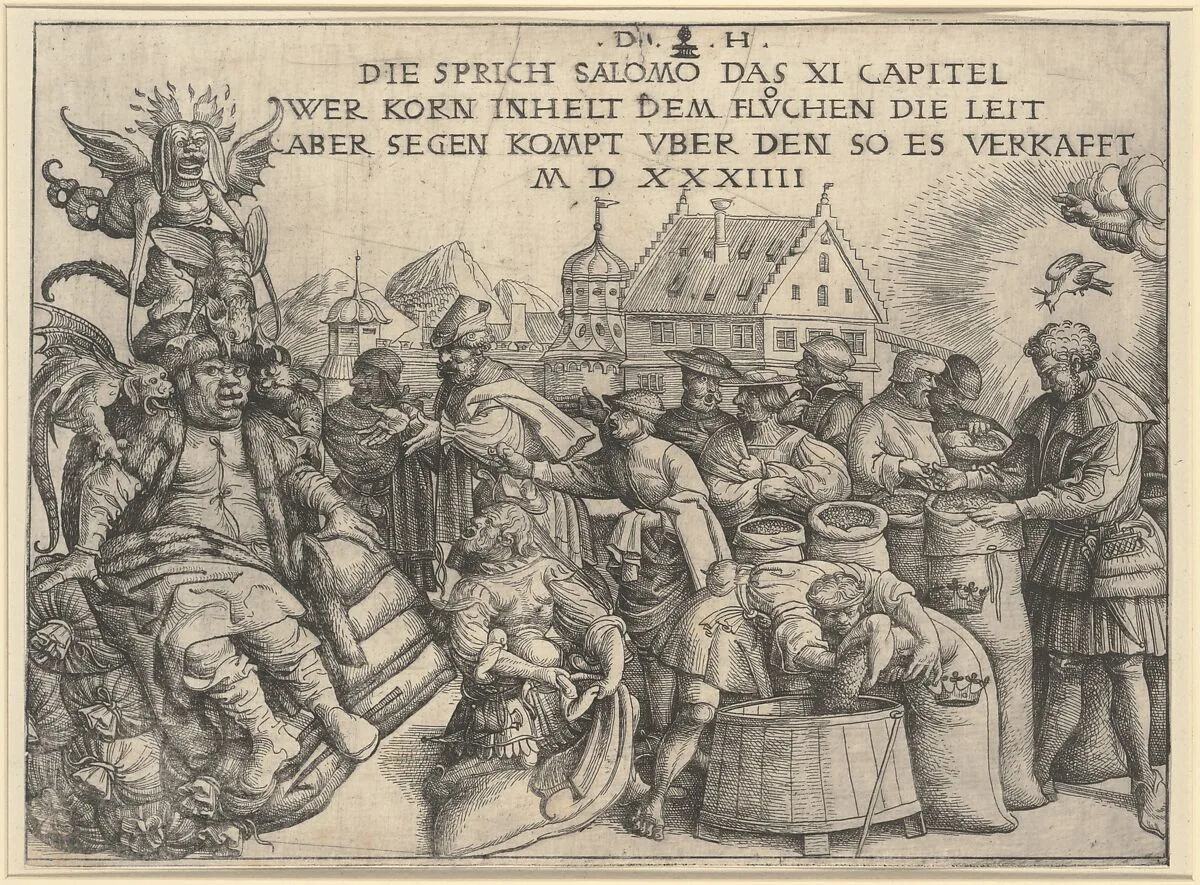 . D . . H .
DIE SPRICH SALOMO DAS XI CAPITEL
WER KORN INHELT DEM FLůCHEN DIE LEIT
ABER SEGEN KOMPT VBER DEN SO ES VERKAFFT
M D XXXIIII